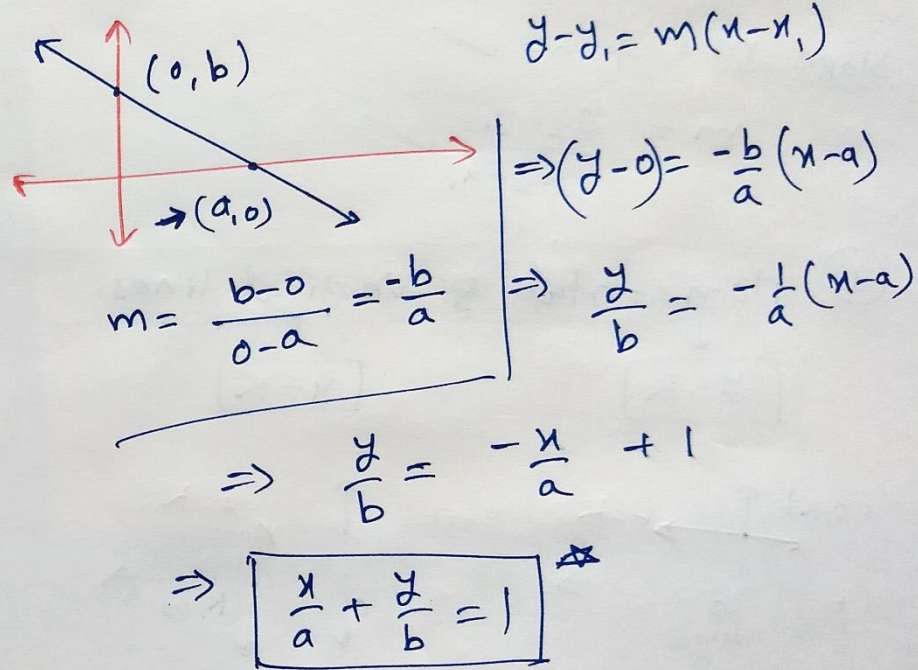 (0, b)
→(a, 0)
m = \frac{b-0}{0-a} = \frac{-b}{a}
y-y₁ = m(x-x₁)
⇒(y-0) = \frac{-b}{a}(x-a)
⇒ \frac{y}{b} = -\frac{1}{a}(x-a)
⇒ \frac{y}{b} = -\frac{x}{a} + 1
⇒ \frac{x}{a} + \frac{y}{b} = 1 ☆